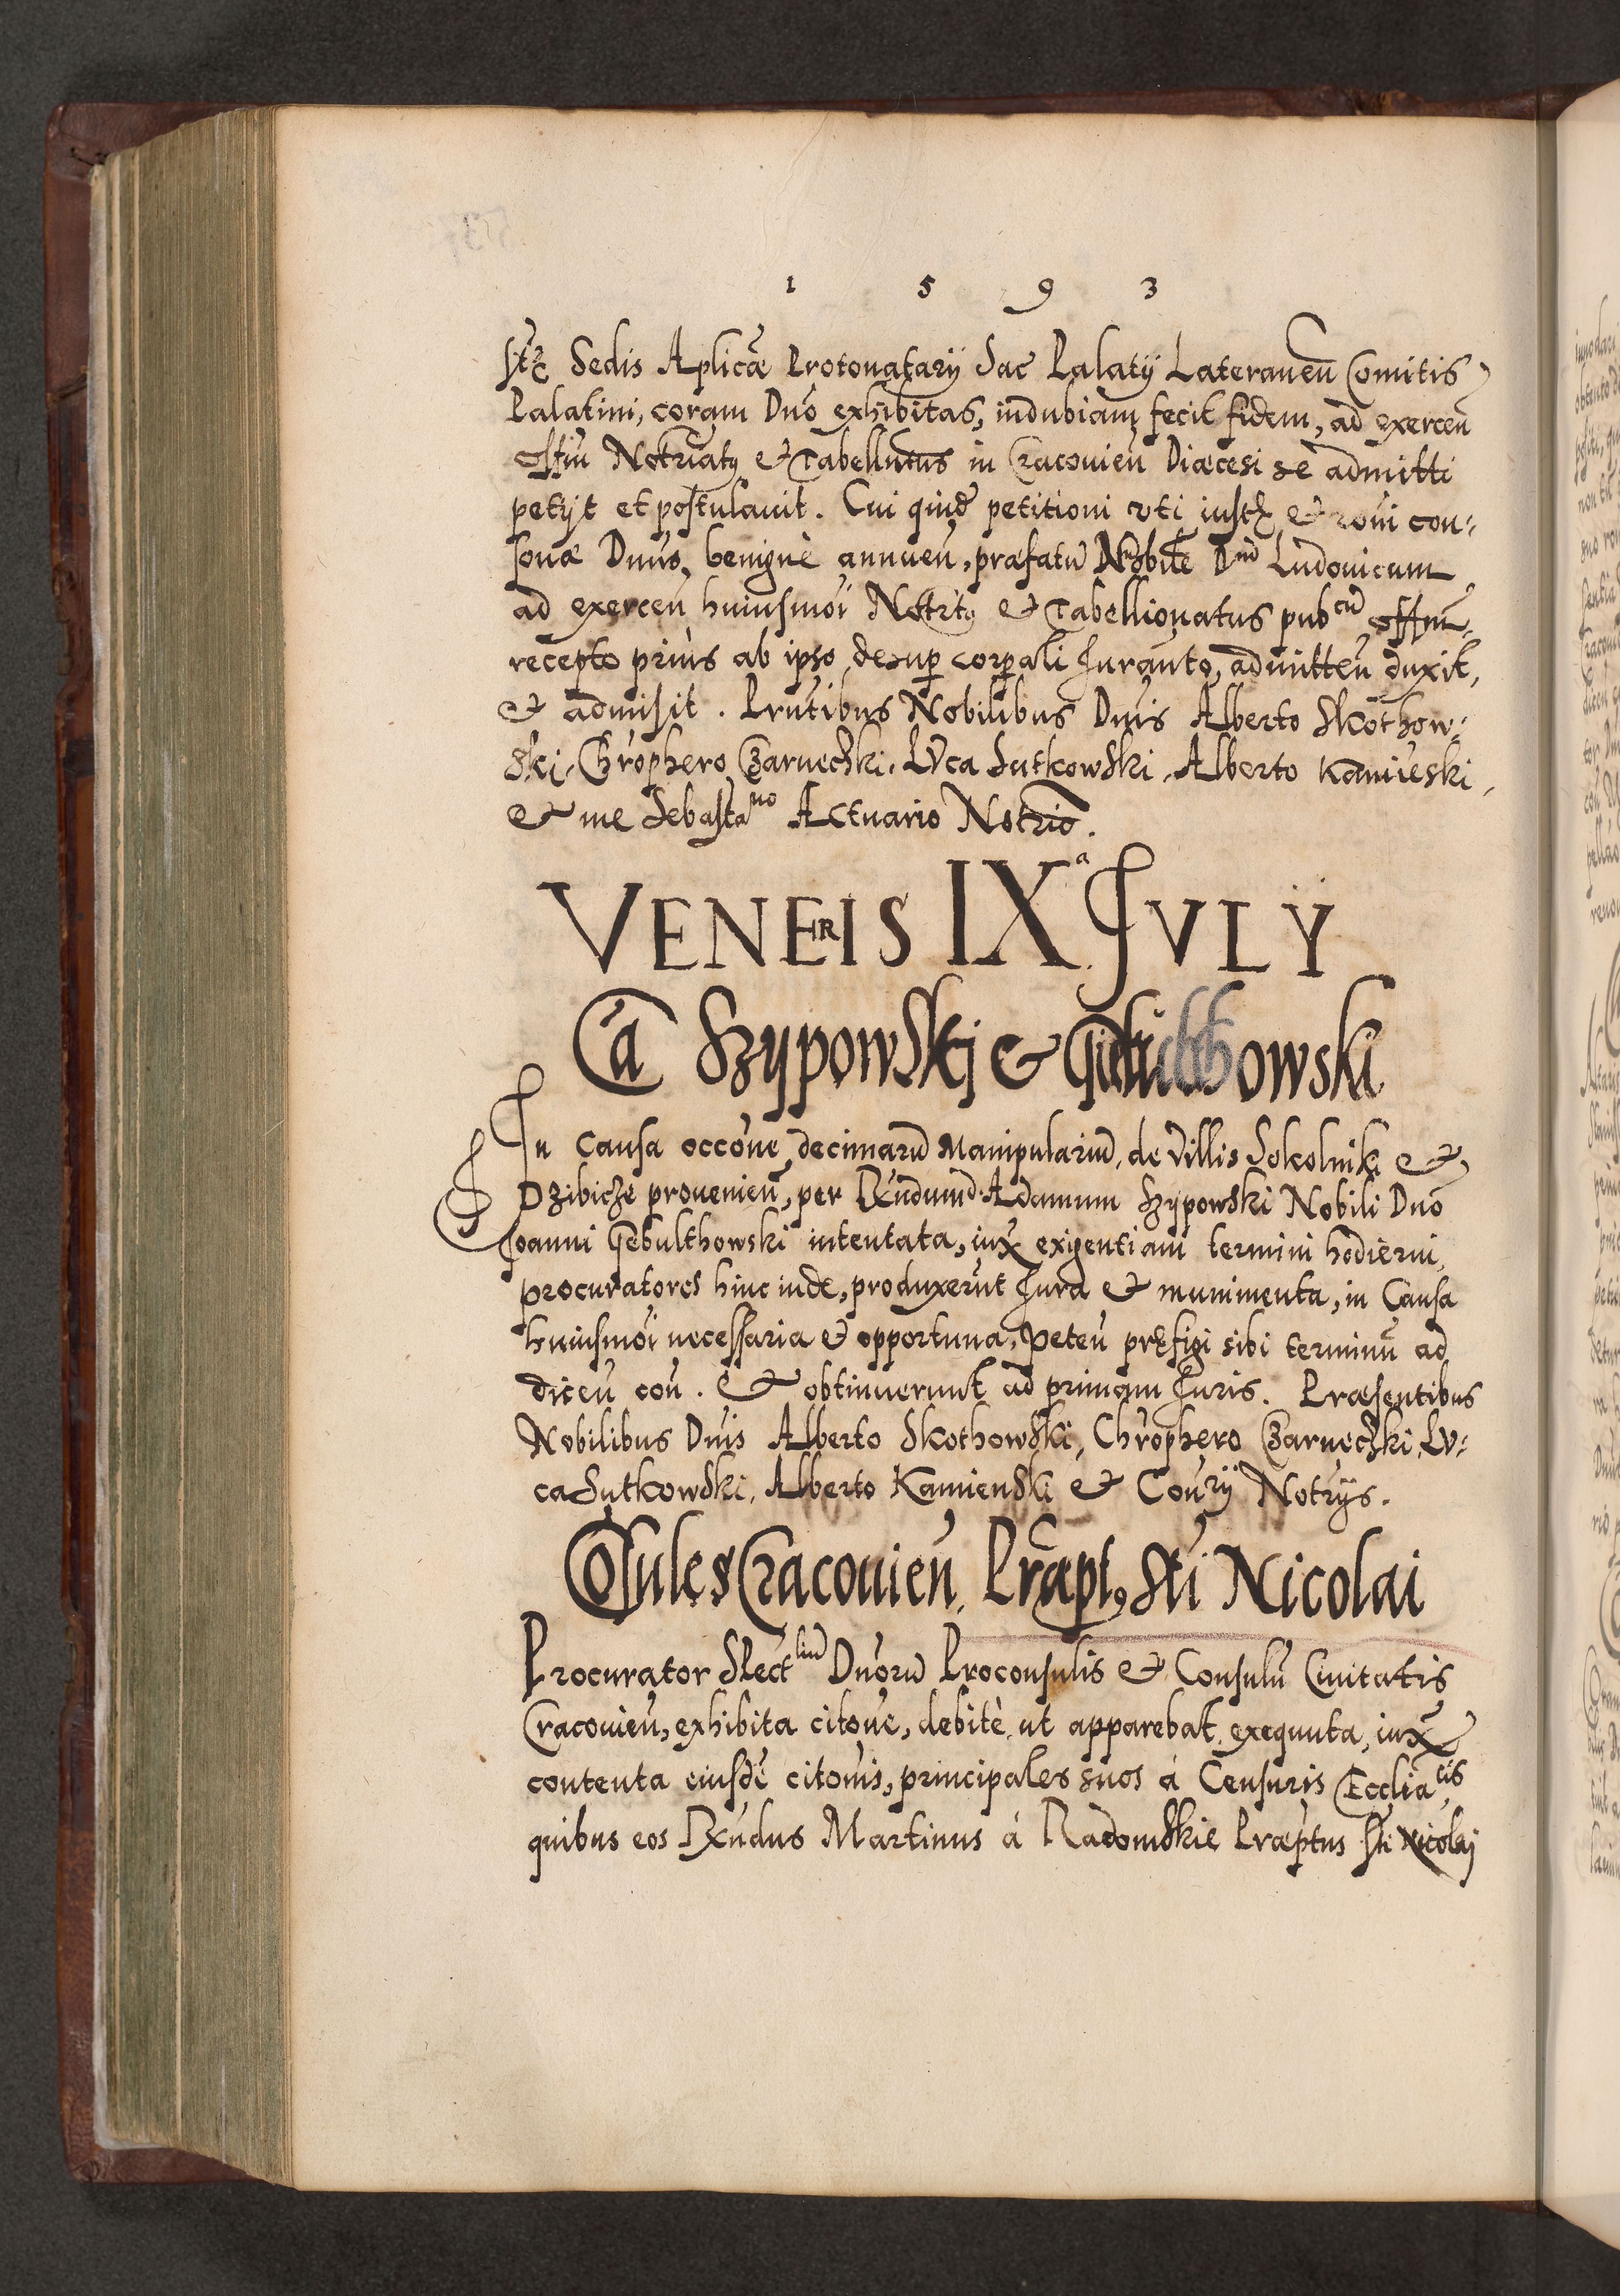 1 5 9 3
Stę Sedis Aplicæ Protonatarij Sac Palatij Lateraneñ Comitis
Palatini, coram Dno exhibitas, indubiam fecit fidem, ad exerceñ
offiu Notriatq et Tabellntus in Cracovieñ Diæcesi se admitti
petijt et postulavit. Cui quid petitioni uti justę et roni con:
sonæ Dnus, benignè annueñ, præfatũ Nobile Dnũ Ludovicum
ad exerceñ huiusmoi Nottritq et Tabellionatus pub cũ offm,
recepto priùs ab ipso desup corpali Juranto, admitteñ duxit,
et admisit. Prntibus Nobilibus Dnis Alberto Skothow:
ski, Chrophero Czarnecski, Luca Sutkowski, Alberto Kamieski,
et me Sebasta no Actuario Notrio.
VENERIS IX a JULY
Ca Szypowskj et Gebulthowski
In Causa occone decimarũ Manipulariũ, de villis Sokolniki et
Dzibicze provenieñ, per Rndum d. Adamum Szypowski Nobili Dno
Joanni Gebulthowski intentata, iuxᵃ exigentiam termini hodierni,
procuratores hinc inde, produxerũt Jura et munimenta, in Causa
huiusmoi necessaria et opportuna, peteñ prefigi sibi terminũ ad
diceñ coñ. et obtinuerunt ad primam Juris. Præsentibus
Nobilibus Dnis Alberto Skothowski, Chrophero Czarnecski, Lu:
ca Sutkowski, Alberto Kamienski et Conrij Notrijs.
Cosules Cracovieñ, Præpt9 Sti Nicolai
Procurator Slect liũ Dnorũ Proconsulis et Consulũ Civitatis
Cracovieñ, exhibita citone, debitè ut apparebat exequnta, iuxᵃ
contenta eiusdẽ citonis, principales suos à Censuris Ecclia cis
quibus eos Rxndus Martinus à Radomskie Præptus Sti Nicolaj